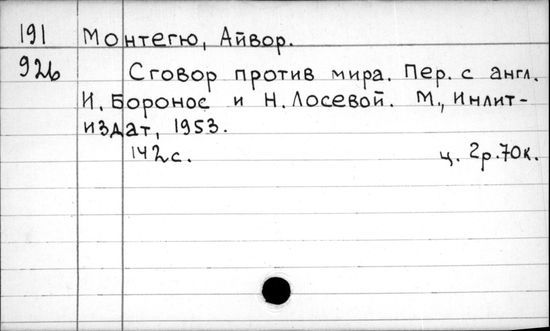 191 Монтегю, Айвор.
926 Сговор против мира. Пер. с англ.
И. Боронос и Н. Лосевой. М., Инлит-
издат, 1953.
142 с. ц. 2р.70к.